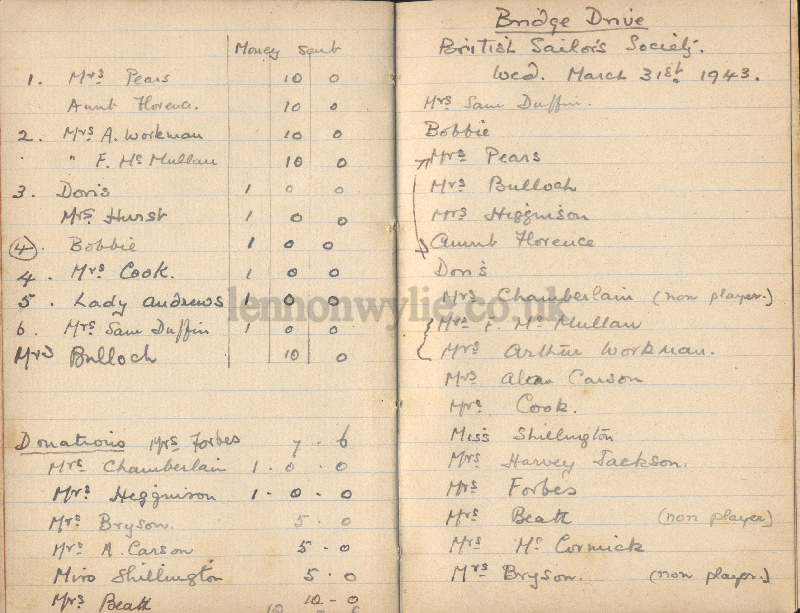 Money Sent
1. Mrs Pears 10 0
Aunt Florence. 10 0
2. Mrs A. Workman 10 0
" " F. Mc Mullan 10 0
3. Doris 1 0 0
Mrs Hurst 1 0 0
4. Bobbie 1 0 0
4. Mrs Cook. 1 0 0
5. Lady Andrews 1 0 0
6. Mrs Sam Duffin 1 0 0
Mrs Bulloch 10 0
Donations Mrs Forbes 7 . 6
Mrs Chamberlain 1 . 0 . 0
Mrs Higginson 1 . 0 . 0
Mrs Bryson. 5 . 0
Mrs A. Carson 5 . 0
Miss Shillington 5 . 0
Mrs Beath 10 - 0
Bridge Drive
British Sailor's Society.
Wed. March 31st 1943.
Mrs Sam Duffin.
Bobbie
Mrs Pears
Mrs Bulloch
Mrs Higginson
Aunt Florence
Doris
Mrs Chamberlain (non player.)
Mrs F. Mc Mullan
Mrs Arthur Workman.
Mrs Alan Carson
Mrs Cook.
Miss Shillington
Mrs Harvey Jackson.
Mrs Forbes
Mrs Beath (non player)
Mrs Mc Cormick
Mrs Bryson. (non player)
lennonwylie.co.uk